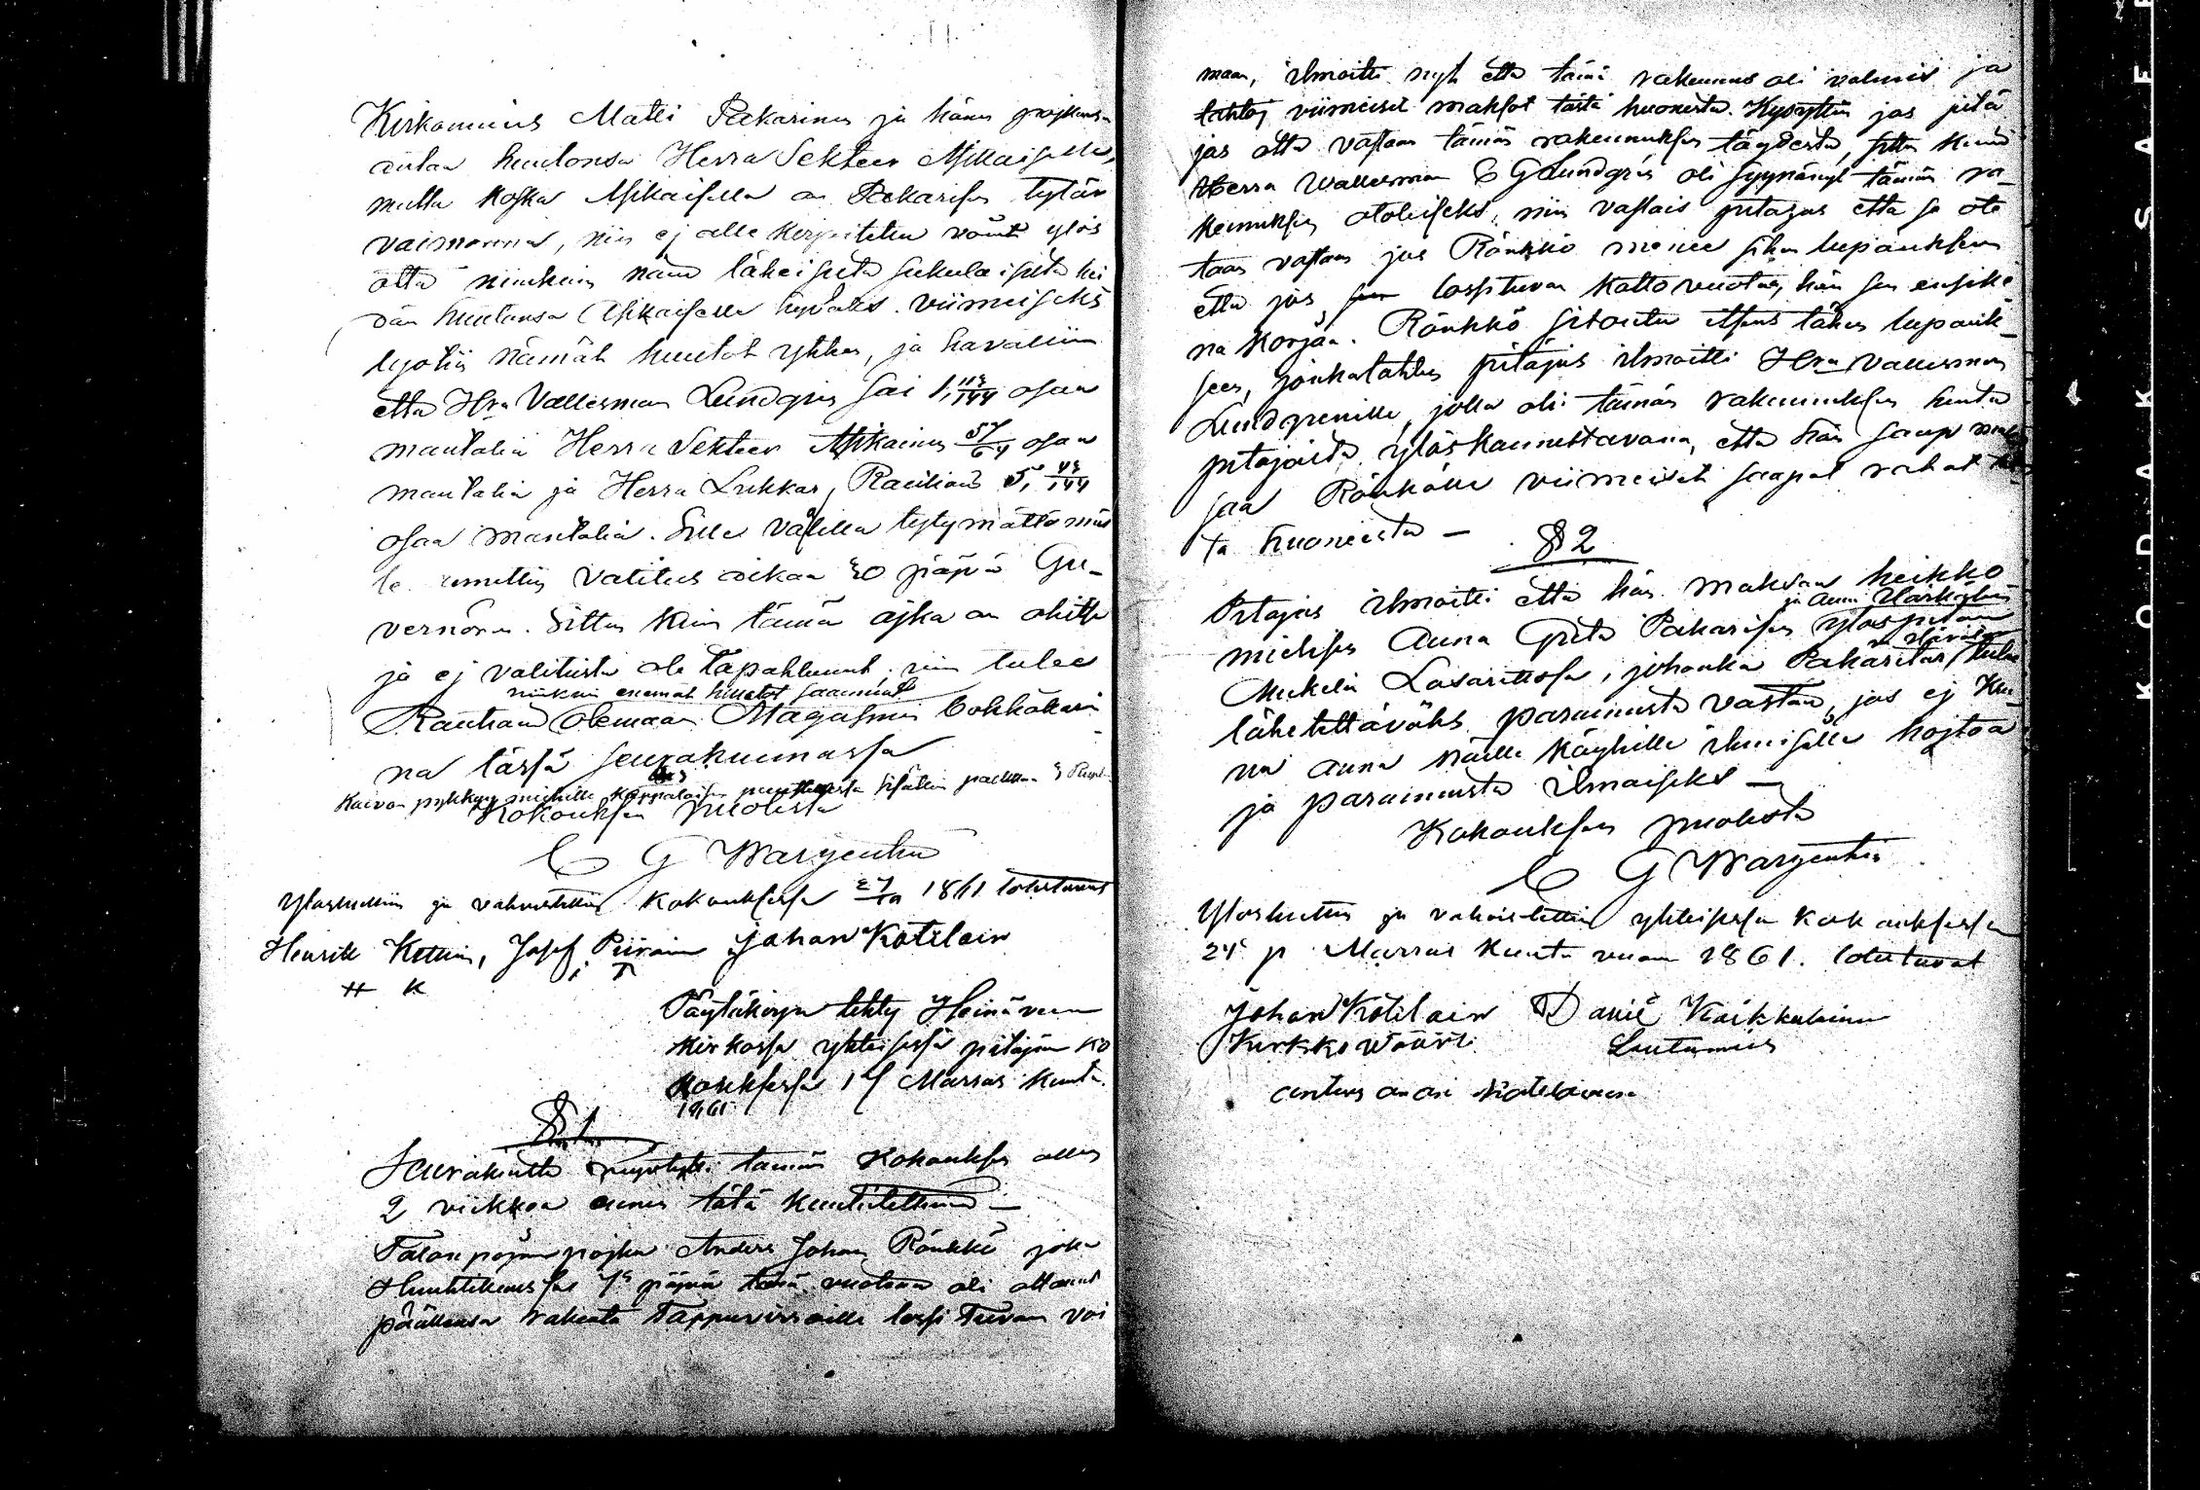 Kirkomies Matti Pakarinen ja hänen pojkansa
antaa huutonsa Herra Sekteer Mikaiselle,
mutta koska Mikaisella on Pakarisen tytär
vaimonna, niin ej olle kirjoitettu voinut ylös
otta nimikuin näin läheisestä sukulaisista hei
dän huutonsa Mikaiselle hyväks. viimeiseks
lyötiin nämät huutot yhteen, ja havaittiin
että Hra Vallesman Lundgren sai 1, 113/144 osaa
mantalia Herra Sekteer Mikainen 57/64 osaa
mantalia ja Herra Lukkar, Rautiain 5, 43/144
osaa mantalia. Sille välillä tytymättömiis
le annettiin valitus aikaa 30 päivä Gu-
vernöri. Sitten kuin tämä ajka on ohitse
ja ej valitusta ole tapahtunut, niin tulee
niinkuin enemät huutot saanut
Rautiain olemaan Magasinin bokhållari
na tässä seurakunnassa
Kokouksen puolesta
C G Wargentin
Ylösluettiin ja vahvistettiin kokouksessa 27/10 1861 todistavat
Henrik Kettuin, Josef Piirain Johan Kötilain
H K I P
Pöytäkirja tehty Heinäveen
kirkossa yhteisessä pitäjän ko
kouksessa 17 Marras kuuta
1861
§ 1
Seurakunta tämän kokouksen olleen
2 viikkoa ennen tätä kuulutettuna —
Talon pojan pojka Anders Johan Rönkkö joka
Huuhtikuussa 7s päivä tänä vuotena oli ottanut
päällensä rakenta Tappuvirroille lossi Tuvan voi
maan, ilmoitti nyt että tämä rakennus oli valmis ja
tahtoj viimeiset maksot tästä huonesta. Kysyttiin jos pitä
jäs otta vastaan tämän rakennuksen täydestä, sitten kuin
Herra Wallesman C G Lundgren oli syynänyt tämän ra-
kennuksen otoliseks, niin vastais pitäjäs että se ote
taan vastaan jos Rönkkö menee siihen lupaukseen
että jos lossituvan katto vuotaa, hän sen ensike
na korjaa. Rönkkö sitoutu itsens tähän lupauk-
seen, jonkatähden pitäjäs ilmoitti Hra Vallesman
Lundgrenille, jolla oli tämän rakennuksen hinta
pitäjästä ylöskannettavana, että hän saapi mak
saa Rönkölle viimeiset saapat rahat täs
tä huoneesta —
§ 2
Pitäjäs ilmoitti että hän maksaa heikko
ja Anni Härkösen
mielisen Anna Greta Pakarisen ylöspitoon
Mikelin Lasaretissa, johonka Pakaritar tulee
lähetettäväks parannusta vastaan, jos ej Kru
nu anna näille köyhille ihmisille hojtoa
ja parannusta ilmaiseks —
Kokouksen puolesta
C G Wargentin
Ylösluettu ja vahvistettiin yhteisessä kokouksessa
24 p Marras kuuta vuonna 1861. todistavat
Johan Kötilain Daniel Kaikkulainen
Kirkko Wääri Lautamies